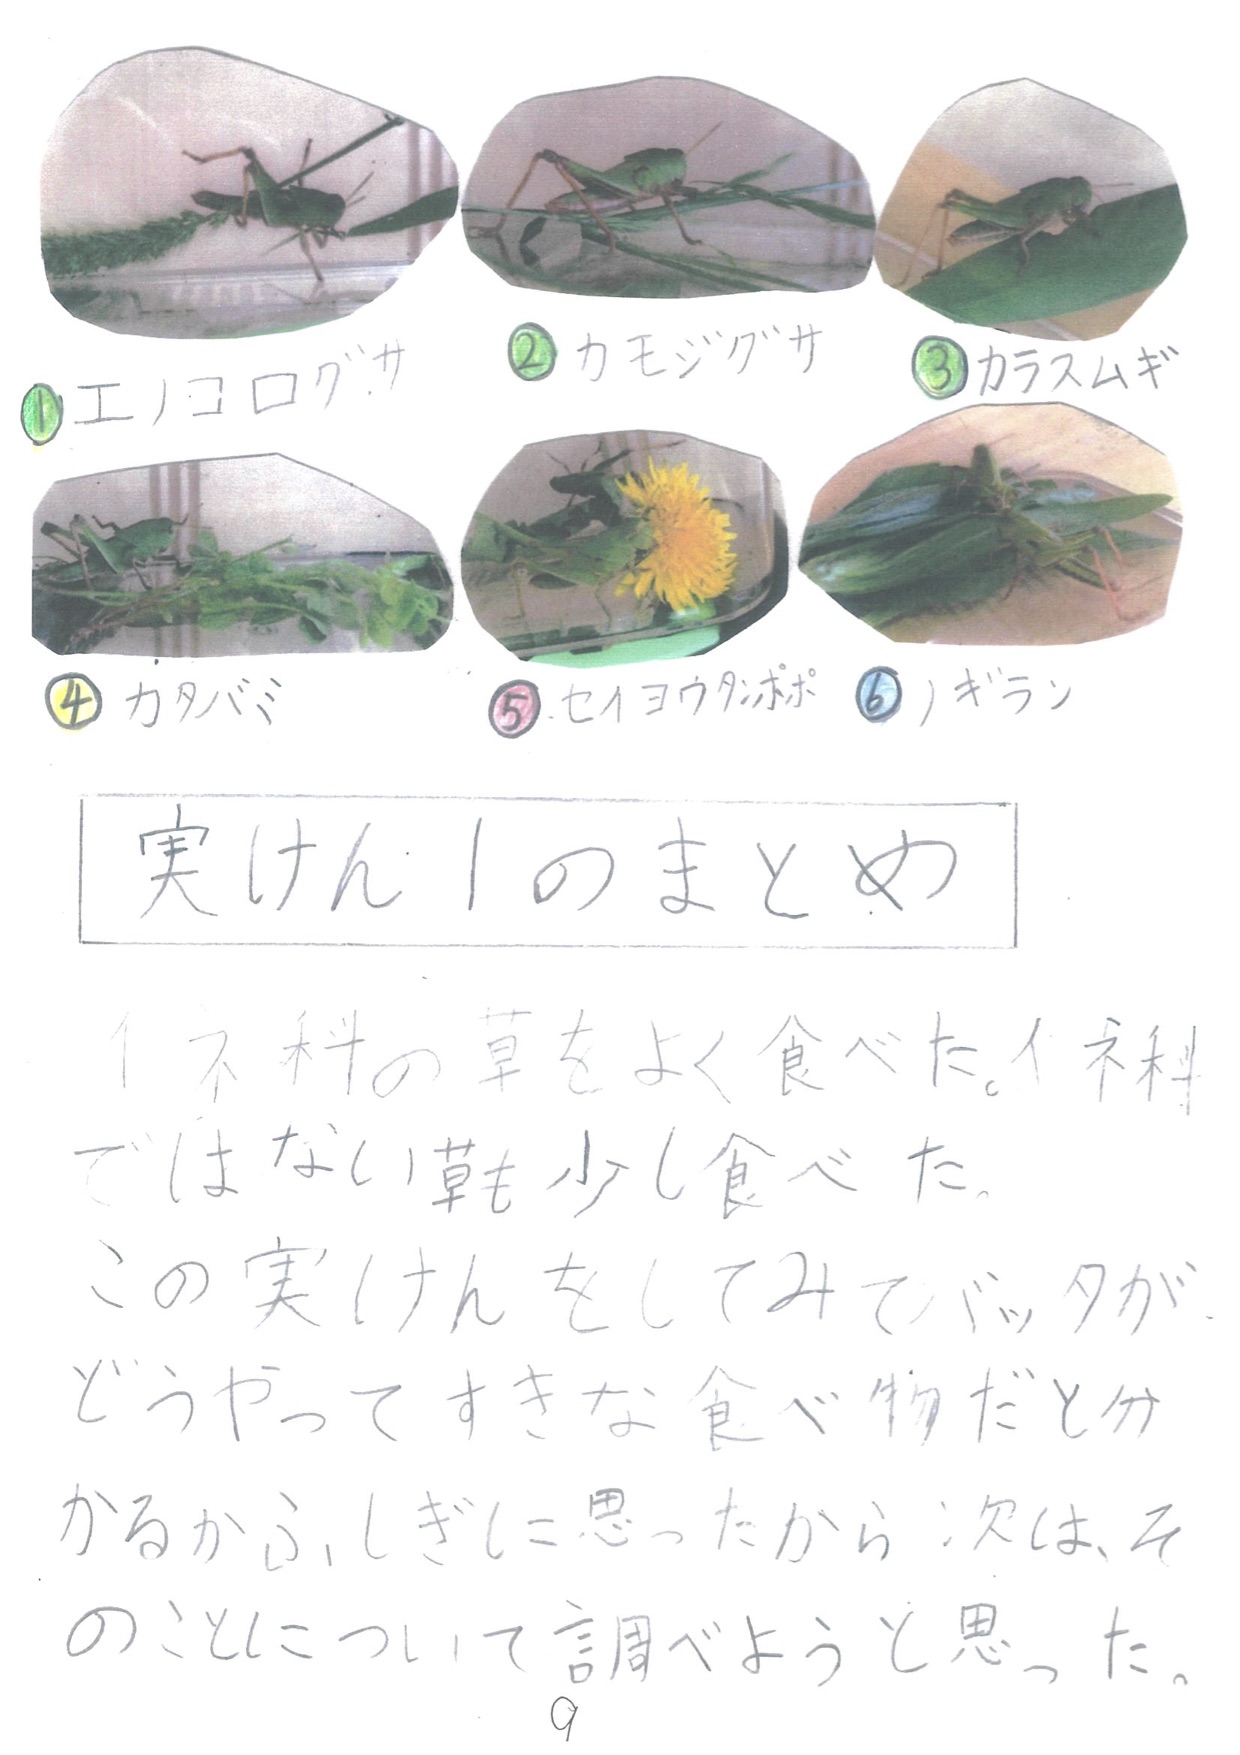 ① エノコログサ
② カモジグサ
③ カラスムギ
④ カタバミ
⑤ セイヨウタンポポ
⑥ ノギラン
実けん1のまとめ
イネ科の草をよく食べた。イネ科
ではない草も少し食べた。
この実けんをしてみてバッタが
どうやってすきな食べ物だと分
かるかふしぎに思ったから次は、そ
のことについて調べようと思った。
9